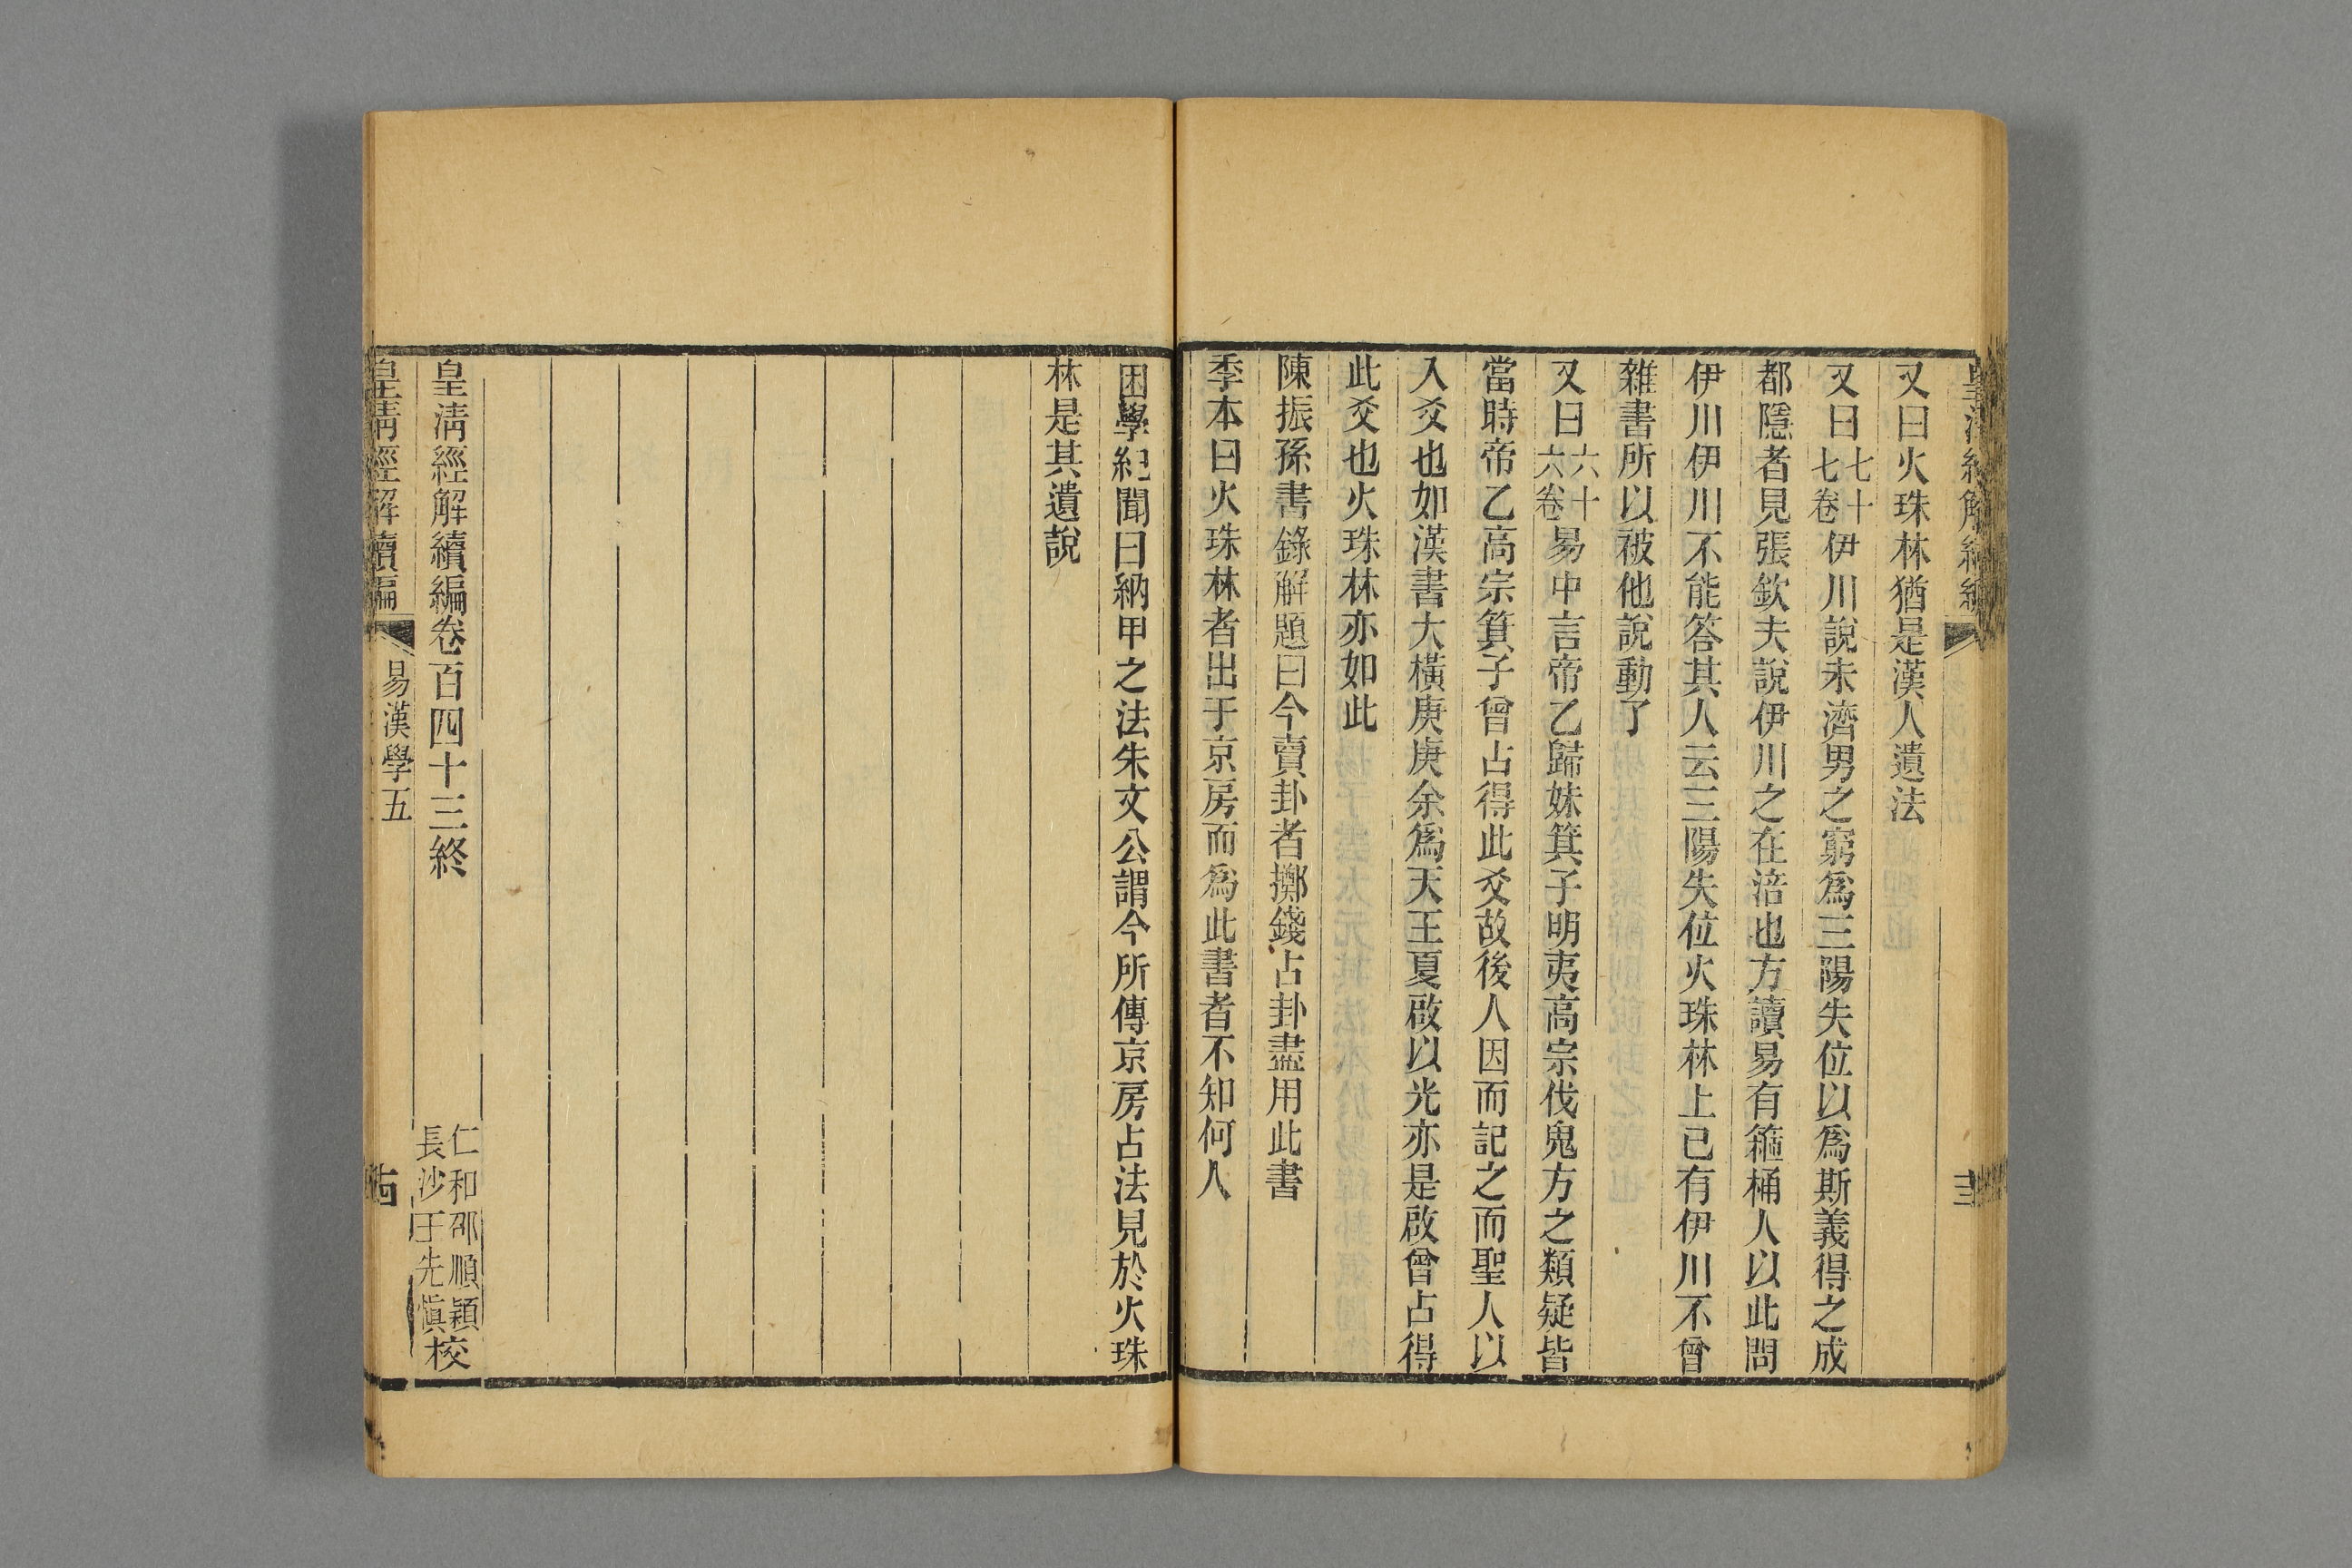 皇清經解續編
十三
又曰火珠林猶是漢人遺法
又曰七十七卷伊川說未濟男之窮爲三陽失位以爲斯義得之成
都隱者見張欽夫說伊川之在涪也方讀易有箍桶人以此問
伊川伊川不能答其人云三陽失位火珠林上已有伊川不曾
雜書所以被他說動了
又曰六十六卷易中言帝乙歸妹箕子明夷高宗伐鬼方之類疑皆
當時帝乙高宗箕子曾占得此爻故後人因而記之而聖人以
入爻也如漢書大橫庚庚余爲天王夏啟以光亦是啟曾占得
此爻也火珠林亦如此
陳振孫書錄解題曰今賣卦者擲錢占卦盡用此書
季本曰火珠林者出于京房而爲此書者不知何人
困學紀聞曰納甲之法朱文公謂今所傳京房占法見於火珠
林是其遺說
皇清經解續編卷百四十三終
仁和邵順穎
長沙王先慎校
皇清經解續編
易漢學五
十四